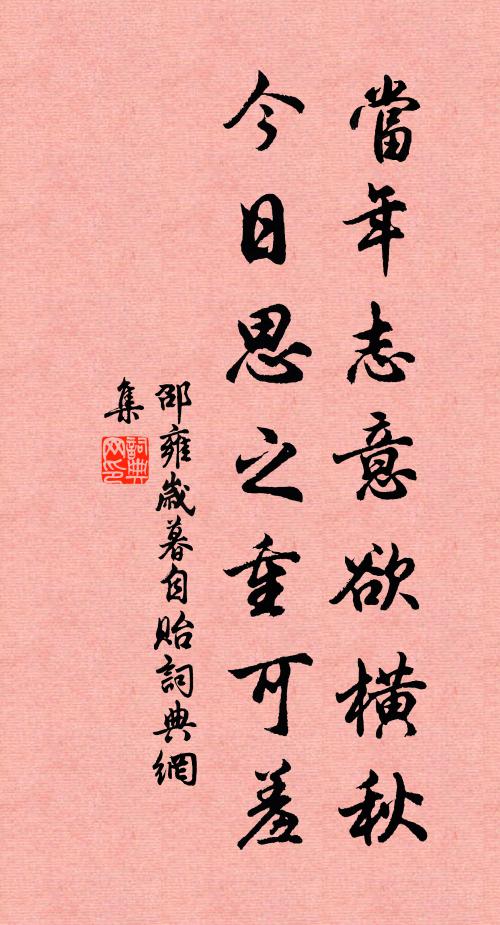 當年志意欲横秋
今日思之重可羞
邵雍歲暮自貽詞典網
集
詞典
网印